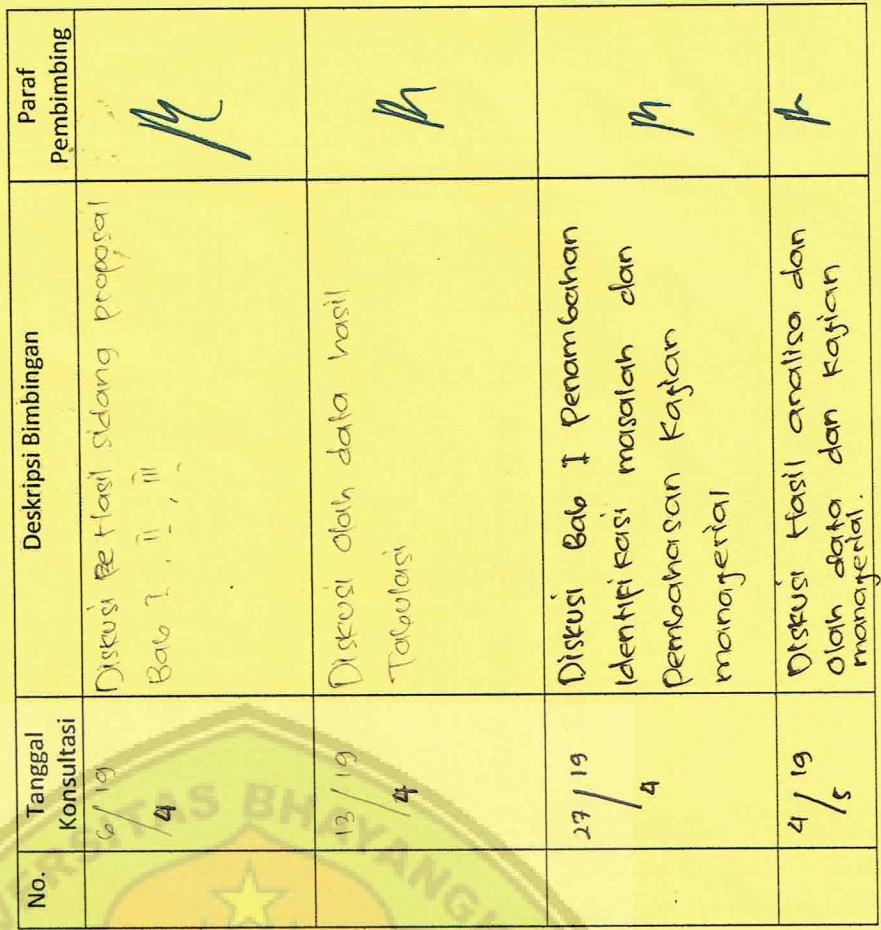 No.
Tanggal
Konsultasi
Deskripsi Bimbingan
Paraf
Pembimbing
6/19
4
Diskusi Hasil sidang proposal
Bab I, II, III
13/19
4
Diskusi Olah data hasil
Tabulasi
27/19
4
Diskusi Bab I Penambahan
Identifikasi masalah dan
Pembahasan Kajian
managerial
4/19
5
Diskusi Hasil analisa dan
Olah data dan Kajian
managerial.